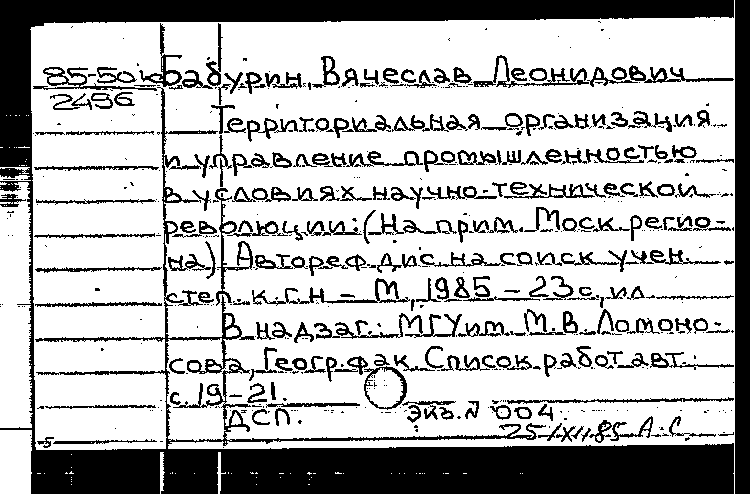 85-50к Бабурин, Вячеслав Леонидович
2496
Территориальная организация
и управление промышленностью
в условиях научно-технической
революции: (На прим. Моск. регио-
на). Автореф. дис. на соиск. учен.
степ. к.г.н. – М., 1985 – 23 с., ил.
В надзаг.: МГУ им. М.В. Ломоно-
сова, Геогр. фак. Список работ авт.:
с. 19-21.
ДСП. Экз. N 004
25/XII.85 А.С.